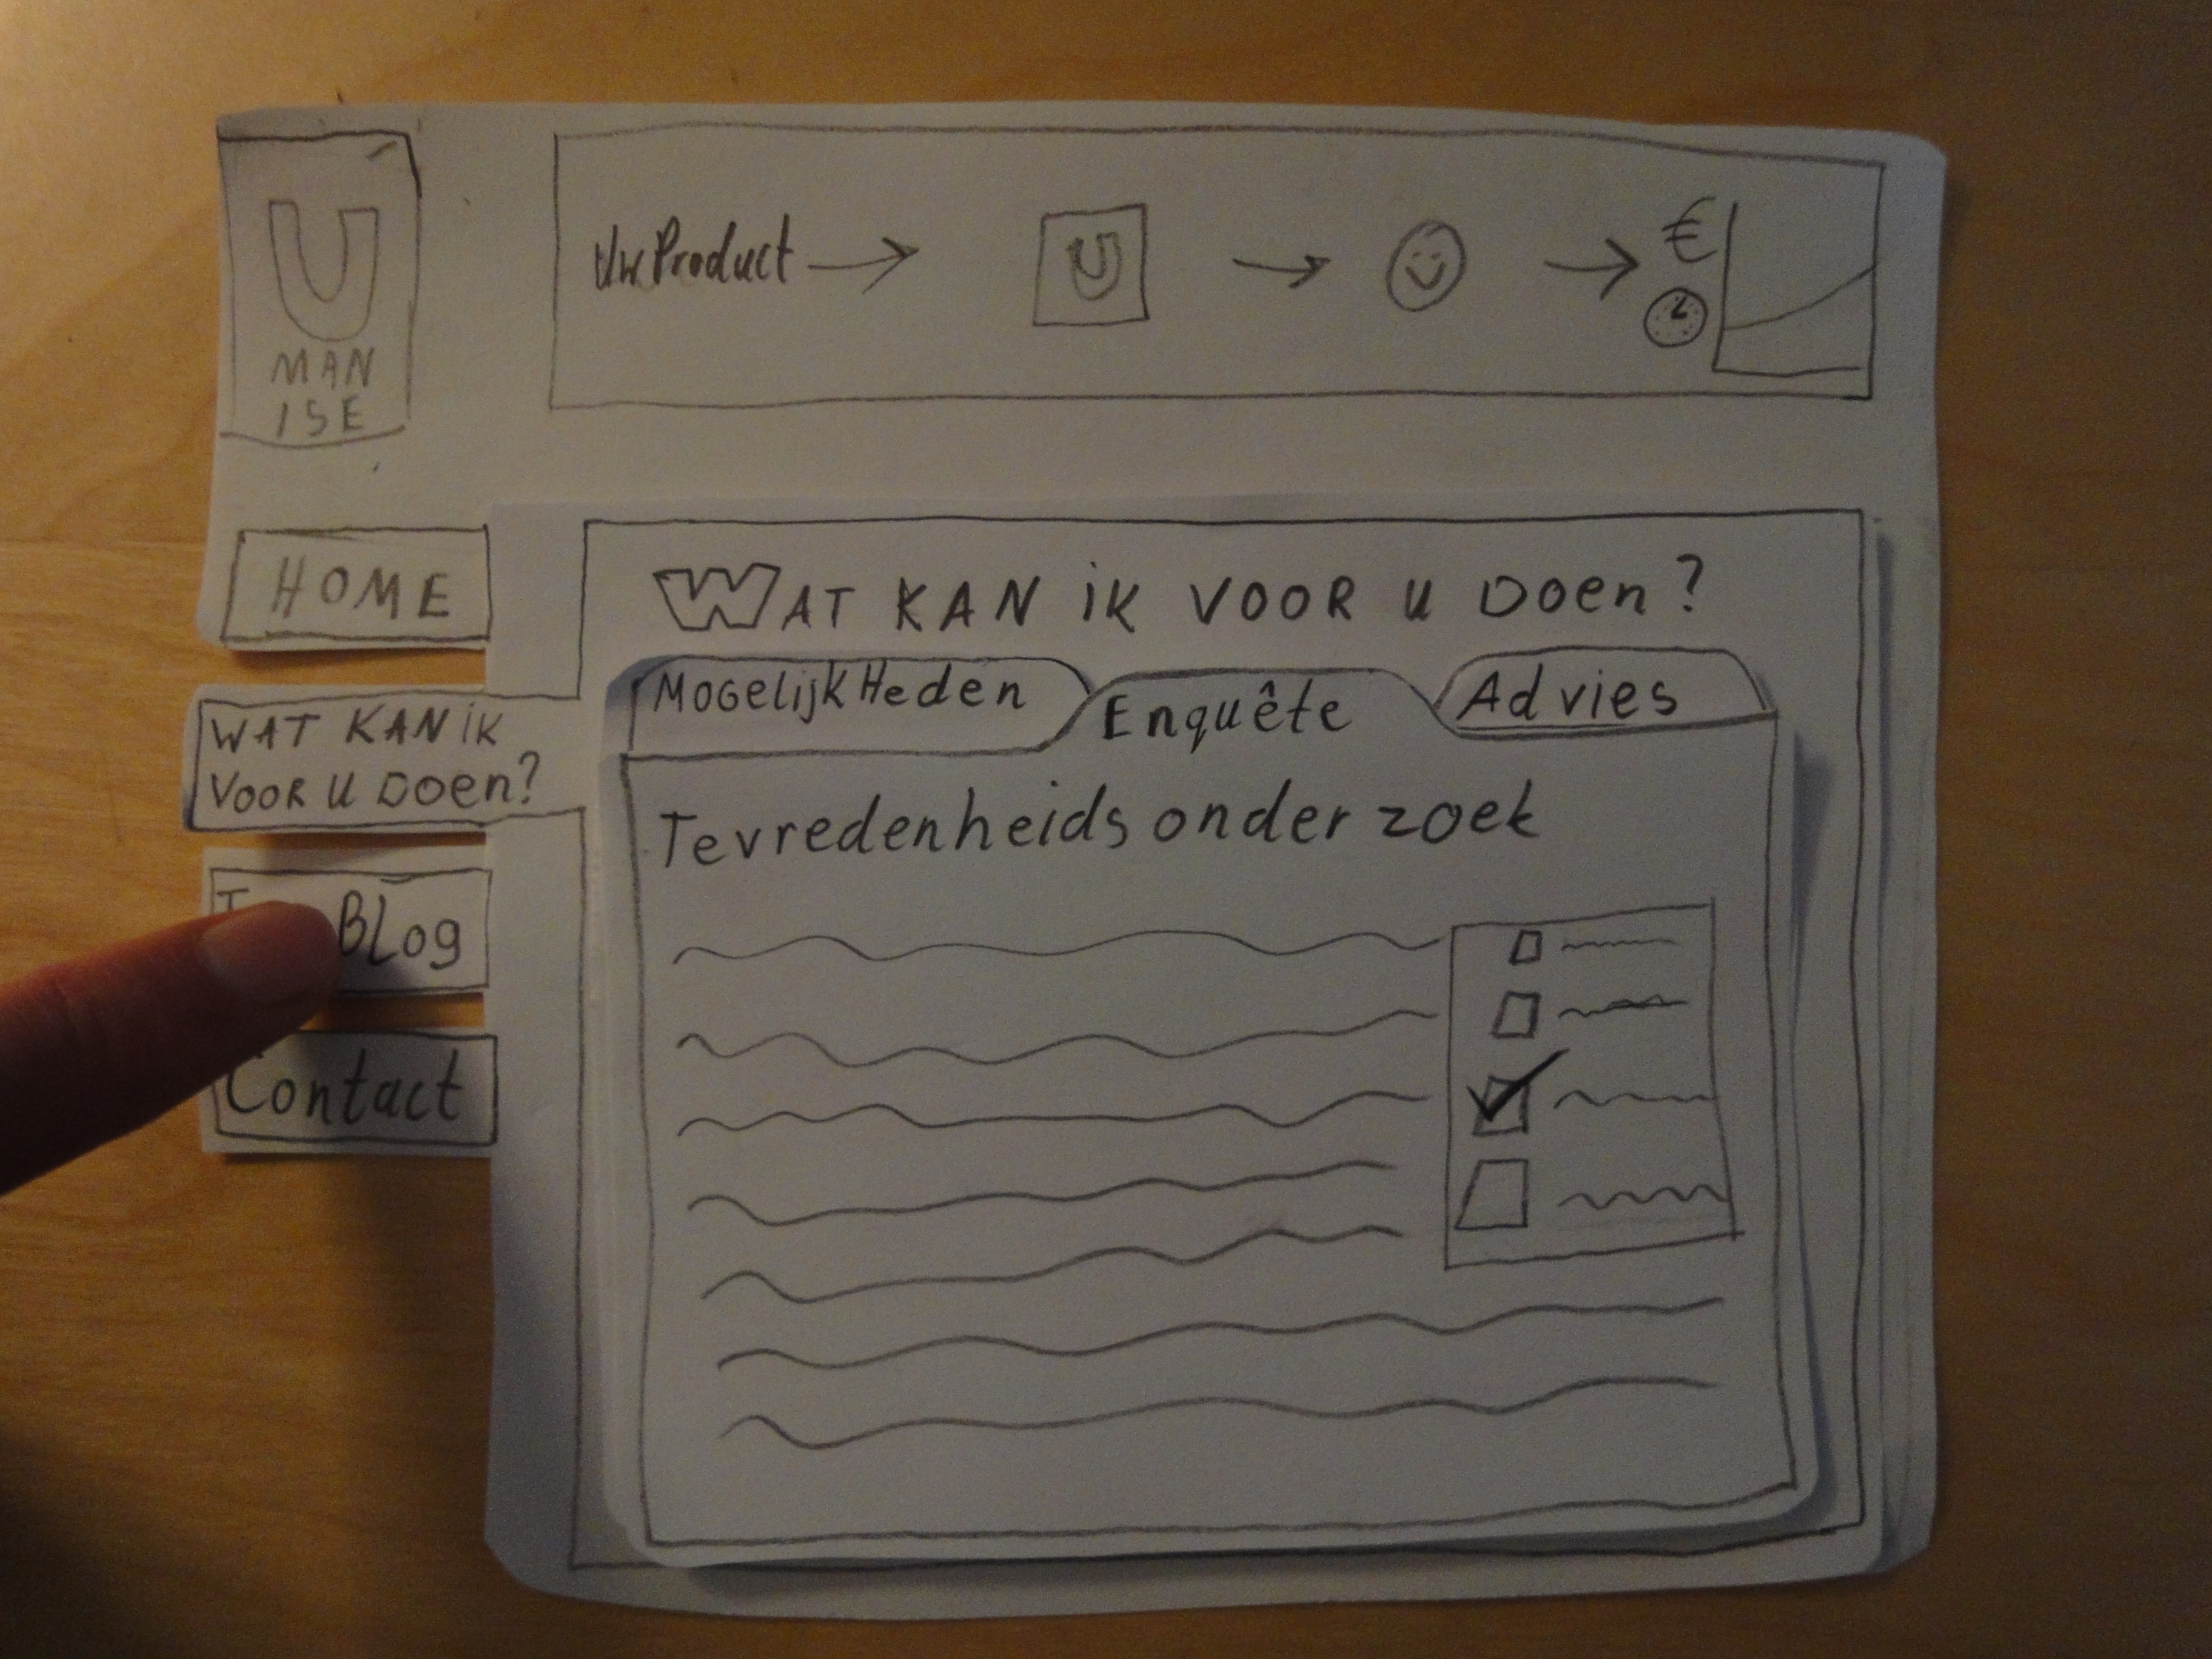 U
MAN
ISE
Uw Product
U
€
HOME
WAT KAN iK
VOOR U DOen?
BLog
Contact
WAT KAN iK VOOR U DOen?
MOGelijkHeden
Enquête
Advies
Tevredenheidsonderzoek